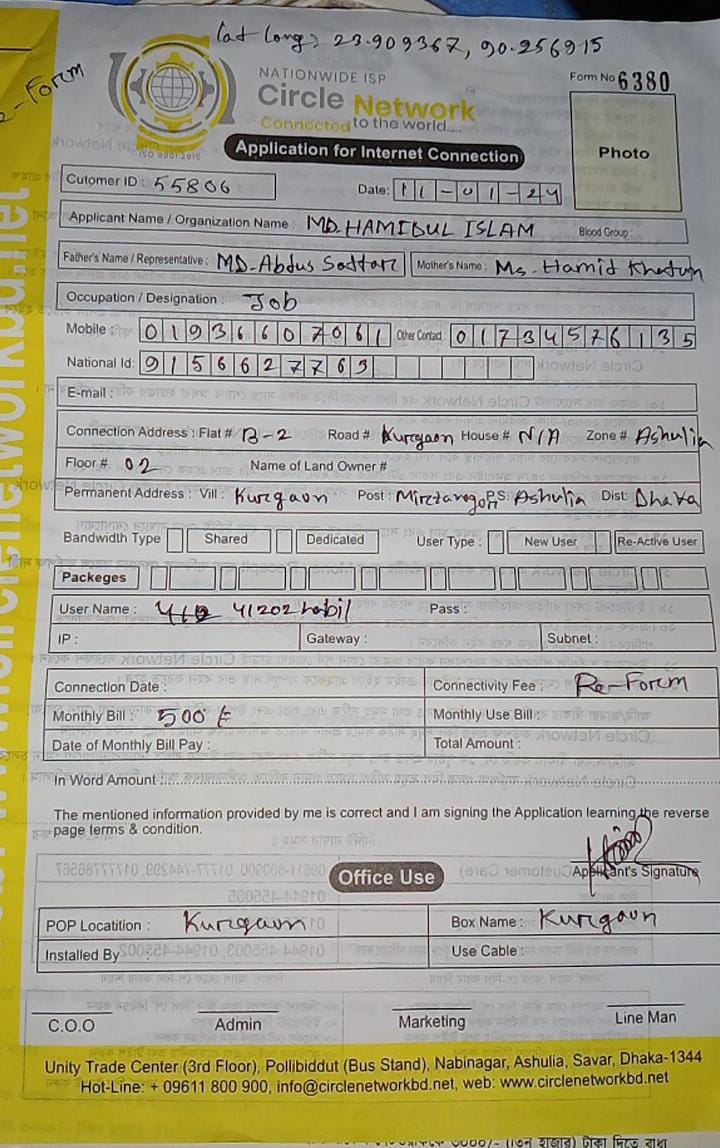 Lat Long: 23.909367, 90.256915
Re-Form
NATIONWIDE ISP
Circle Network
Connected to the world.....
ISO 9001:2015
Form No 6380
Photo
Application for Internet Connection
Cutomer ID : 55806
Date: 11-01-24
Applicant Name / Organization Name : MD. HAMIDUL ISLAM Blood Group :
Father's Name / Representative : MD. Abdus Sattar Mother's Name : Ms. Hamid Khatun
Occupation / Designation : Job
Mobile : 01936607061 Other Contact 01734576135
National Id: 9156627763
E-mail :
Connection Address : Flat # B-2 Road # Kurgaon House # N/A Zone # Ashulia
Floor # 02 Name of Land Owner #
Permanent Address : Vill : Kurgaon Post : Mirzanagor P.S: Ashulia Dist: Dhaka
Bandwidth Type Shared Dedicated User Type : New User Re-Active User
Packeges
User Name : 41202habil Pass :
IP : Gateway : Subnet :
Connection Date : Connectivity Fee : Re-Form
Monthly Bill : 500 ৳ Monthly Use Bill :
Date of Monthly Bill Pay : Total Amount :
In Word Amount :
The mentioned information provided by me is correct and I am signing the Application learning the reverse
page terms & condition.
Applicant's Signature
Office Use
POP Locatition : Kurgaon Box Name : Kurgaon
Installed By : Use Cable :
C.O.O Admin Marketing Line Man
Unity Trade Center (3rd Floor), Pollibiddut (Bus Stand), Nabinagar, Ashulia, Savar, Dhaka-1344
Hot-Line: + 09611 800 900, info@circlenetworkbd.net, web: www.circlenetworkbd.net
(তিন হাজার) টাকা দিতে বাধ্য